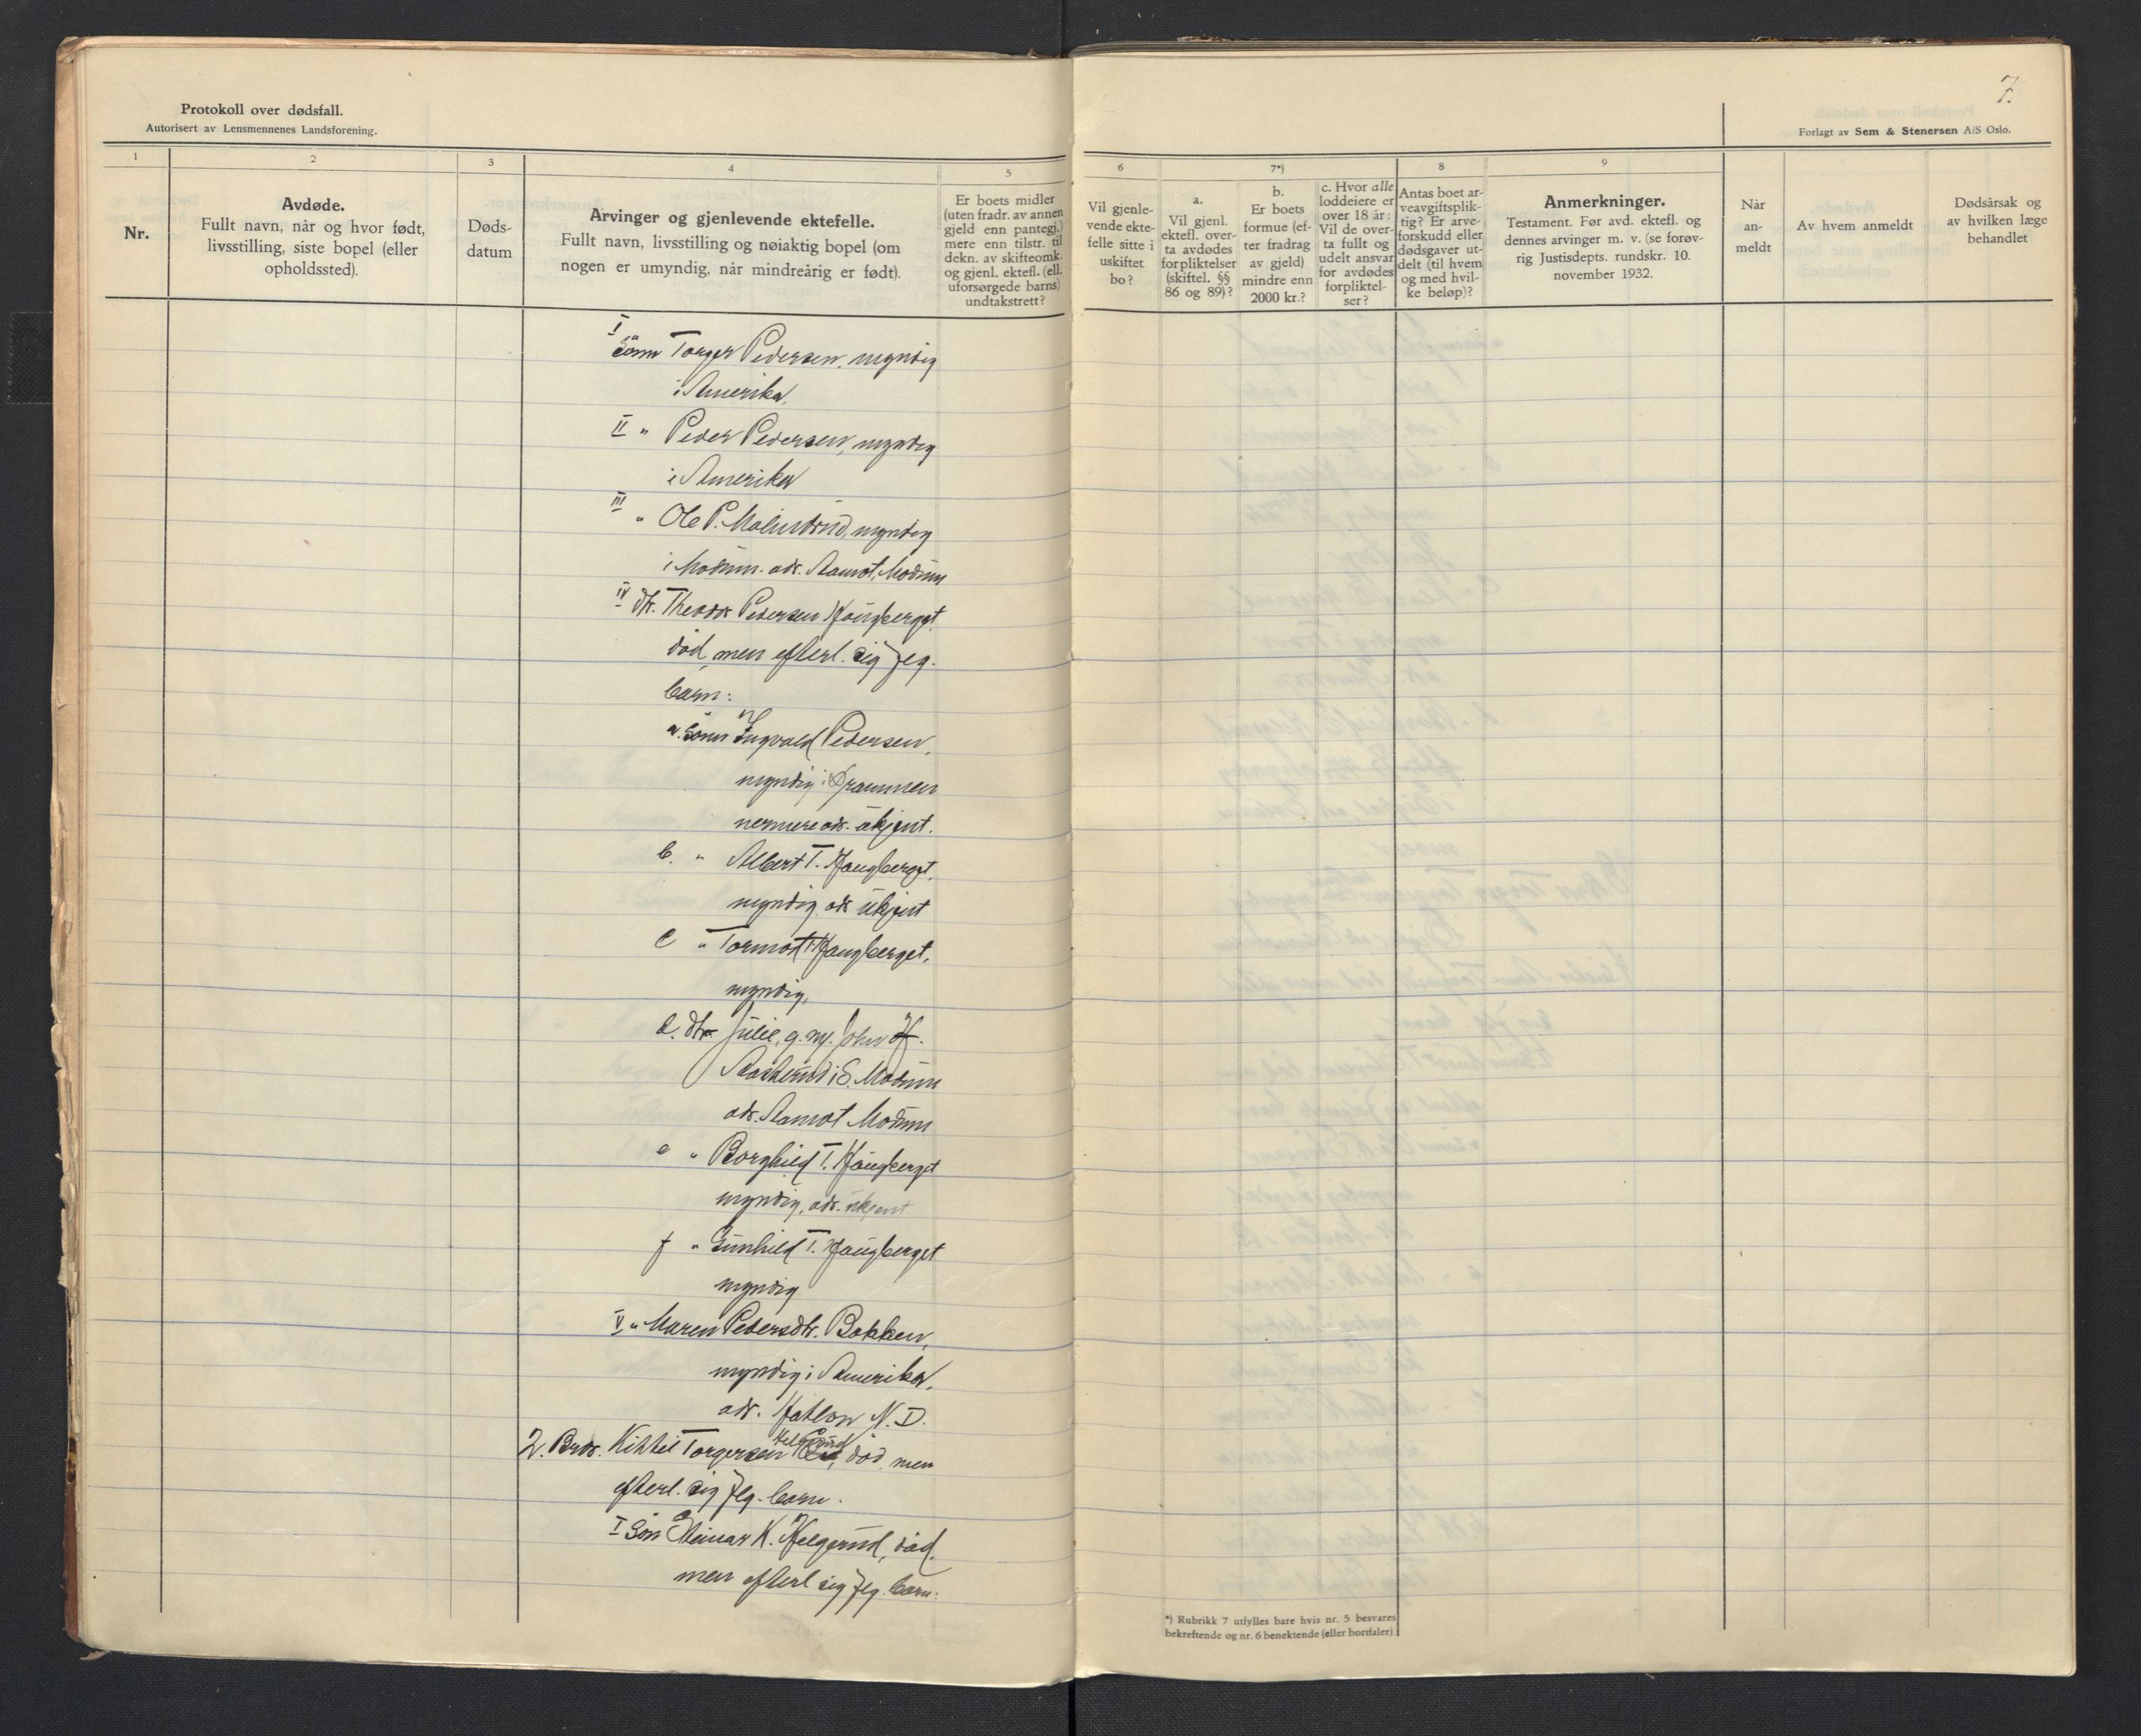 Protokoll over dødsfall.
Autorisert av Lensmennenes Landsforening.
7.
Forlagt av Sem & Stenersen A/S Oslo.
1
2
3
4
5
6
7*)
8
9
Nr.
Avdøde.
Fullt navn, når og hvor født,
livsstilling, siste bopel (eller
opholdssted).
Døds-
datum
Arvinger og gjenlevende ektefelle.
Fullt navn, livsstilling og nøiaktig bopel (om
nogen er umyndig, når mindreårig er født).
Er boets midler
(uten fradr. av annen
gjeld enn pantegj.)
mere enn tilstr. til
dekn. av skifteomk.
og gjenl. ektefl. (ell.
uforsørgede barns)
undtakstrett?
Vil gjenle-
vende ekte-
felle sitte i
uskiftet
bo?
a.
Vil gjenl.
ektefl. over-
ta avdødes
forpliktelser
(skiftel. §§
86 og 89)?
b.
Er boets
formue (ef-
ter fradrag
av gjeld)
mindre enn
2000 kr.?
c. Hvor alle
loddeiere er
over 18 år:
Vil de over-
ta fullt og
udelt ansvar
for avdødes
forpliktel-
ser?
Antas boet ar-
veavgiftsplik-
tig? Er arve-
forskudd eller
dødsgaver ut-
delt (til hvem
og med hvil-
ke beløp)?
Anmerkninger.
Testament. Før avd. ektefl. og
dennes arvinger m. v. (se forøv-
rig Justisdepts. rundskr. 10.
november 1932.
Når
an-
meldt
Av hvem anmeldt
Dødsårsak og
av hvilken læge
behandlet
I
Sønn Torger Pedersen, myndig
i Amerika,
II " Peder Pedersen, myndig
i Amerika
III " Ole P. myndig
i Modum. adr. Aamot, Modum
IV dtr. Theodor Pedersen Haugberget,
død, men efterl. sig flg.
barn:
a. Sønn Ingvald Pedersen,
myndig i Drammen
nermere adr. ukjent.
b. " Albert T. Haugberget,
myndig, adr ukjent
c " Tormod T. Haugberget,
myndig,
d. dtr. Julie, g. m. John H.
i S. Modum
adr. Aamot Modum
e " Borghild T. Haugberget
myndig, adr. ukjent
f " Gunhild T. Haugberget
myndig
V " Maren Pedersdtr. Bakken,
myndig i Amerika,
adr. N. D.
2. Bror. Kittil Torgersen Helgerud, død, men
efterl. sig flg. barn.
I Søn Steinar K. Helgerud, død,
men efterl sig flg. barn:
*) Rubrikk 7 utfylles bare hvis nr. 5 besvares
bekreftende og nr. 6 benektende (eller bortfaler).